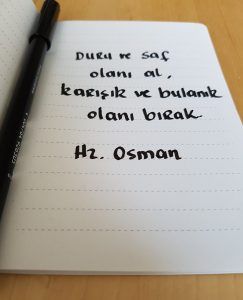 Duru ve saf
olanı al,
karışık ve bulanık
olanı bırak
Hz. Osman